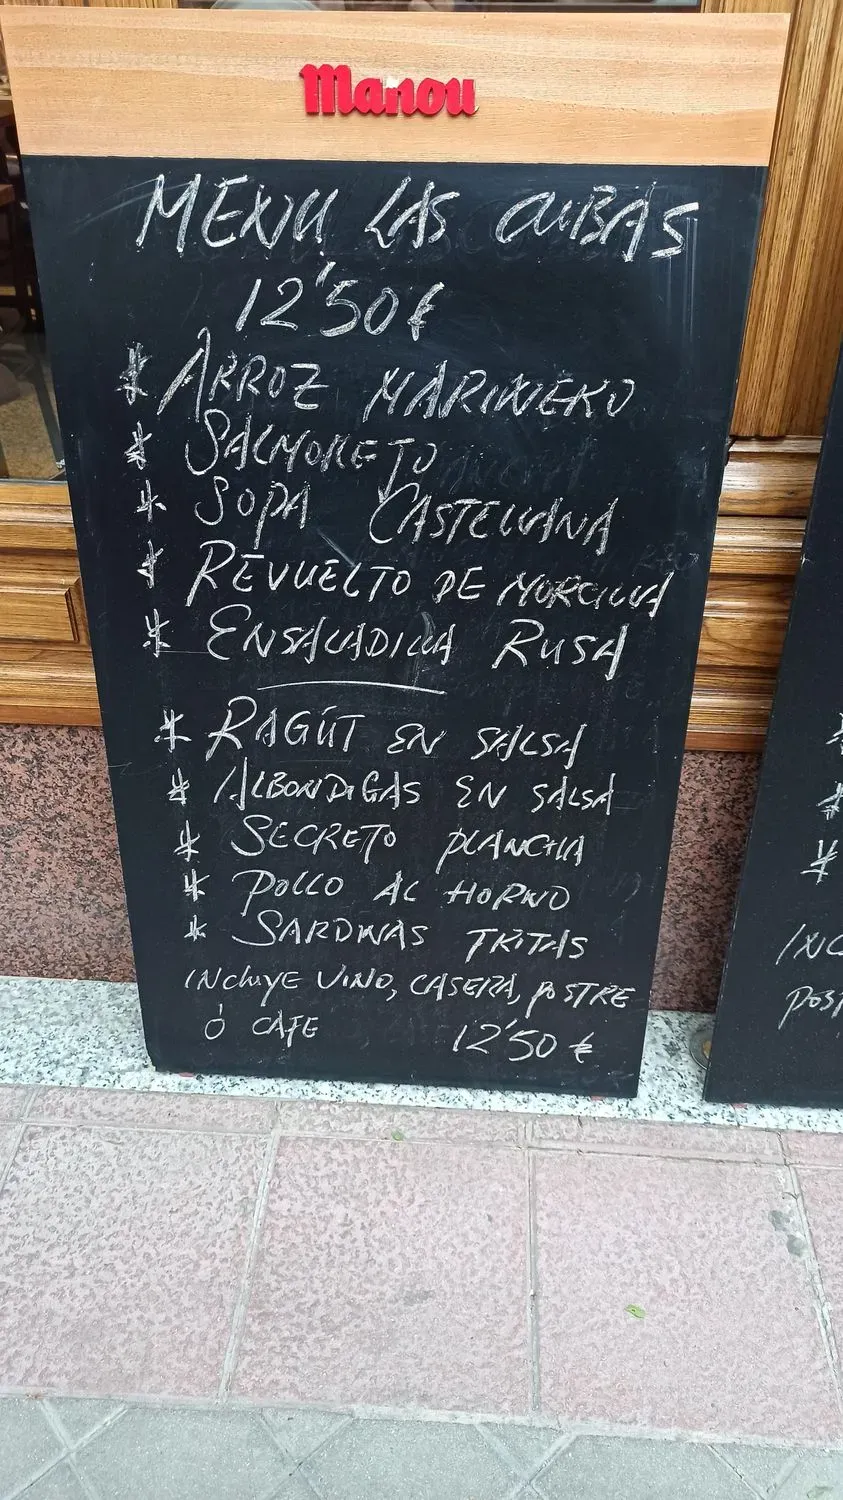 Manou
MENU LAS CUBAS
12'50€
* ARROZ MARINERO
* SALMOREJO
* SOPA CASTELLANA
* REVUELTO DE MORCILLA
* ENSALADILLA RUSA
* RAGÚT EN SALSA
* ALBONDIGAS EN SALSA
* SECRETO PLANCHA
* POLLO AL HORNO
* SARDINAS FRITAS
INCLUYE VINO, CASERA, POSTRE
Ó CAFE 12'50 €